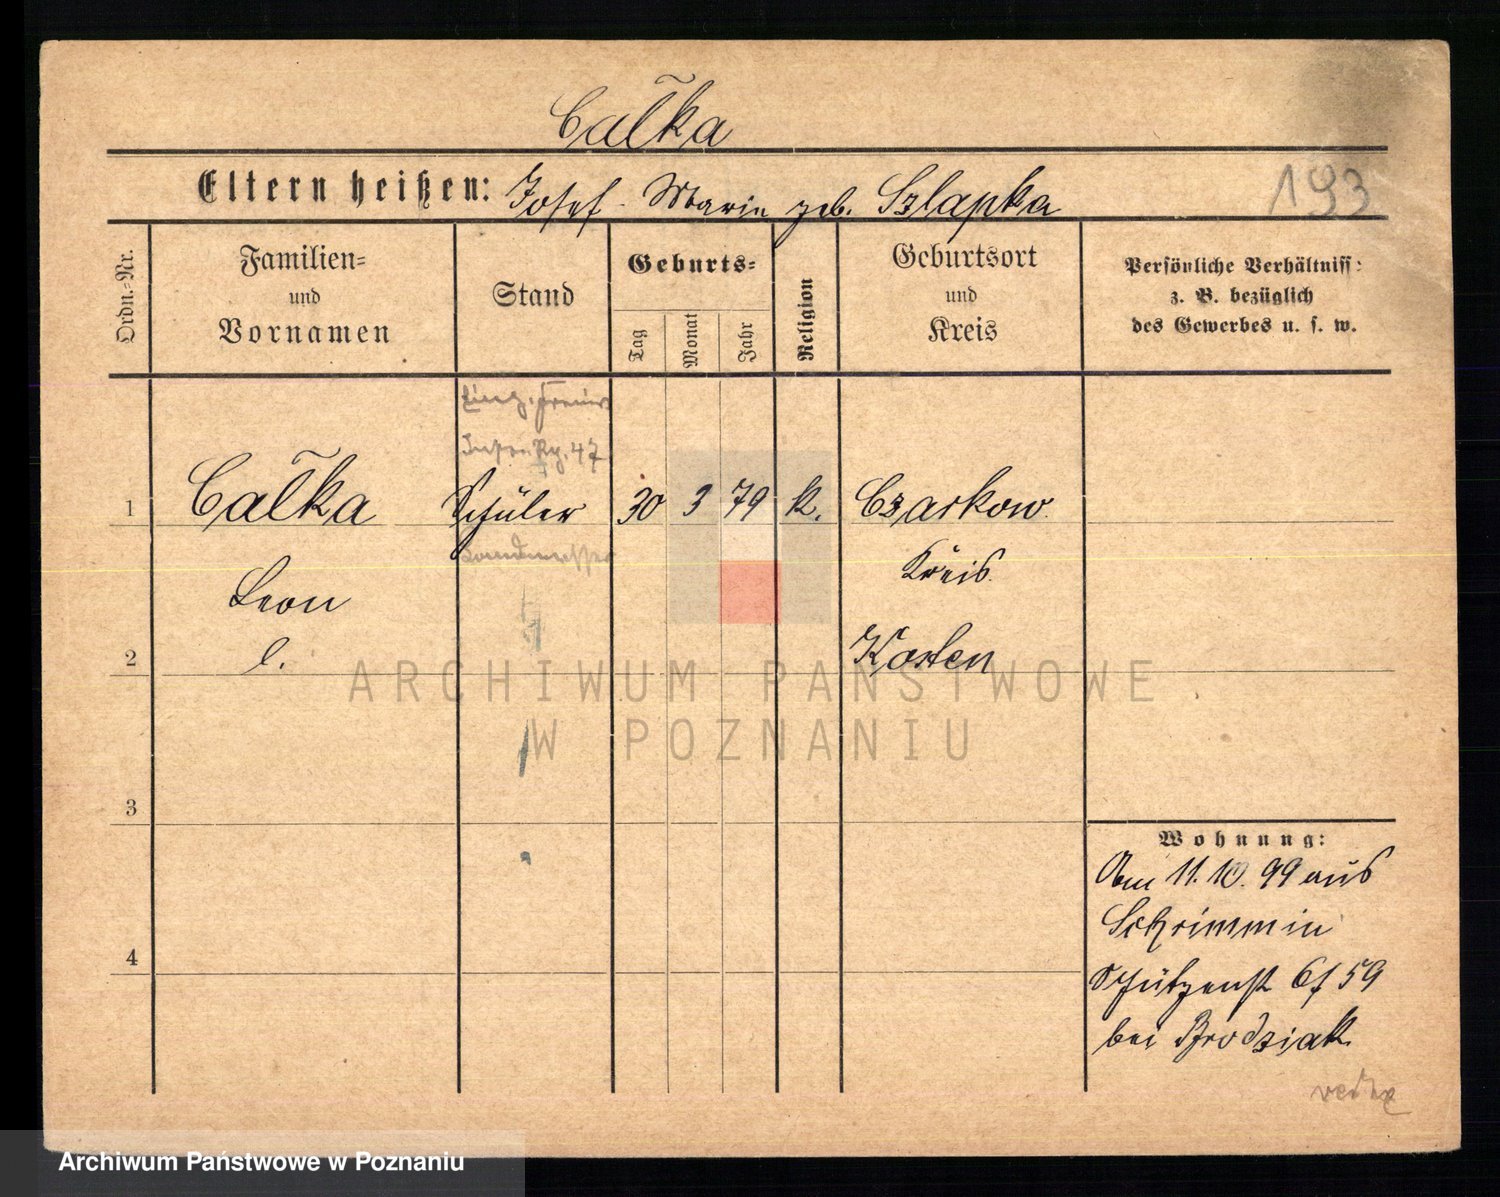 Całka
Eltern heißen: Josef - Marie geb. Szlapka
193
Ordn.-Nr.
Familien-
und
Vornamen
Stand
Geburts-
Tag
Monat
Jahr
Religion
Geburtsort
und
Kreis
Persönliche Verhältniss:
z. B. bezüglich
des Gewerbes u. s. w.
Infan. Rg. 47
1 Całka Schüler 30 3 79 k. Czarkow
Kreis
Leon
2 l. Kosten
ARCHIWUM PAŃSTWOWE
W POZNANIU
3
Wohnung:
Am 11.10.99 aus
Schrimm in
4
Schützenst 6 / 59
bei Brodziak
Archiwum Państwowe w Poznaniu